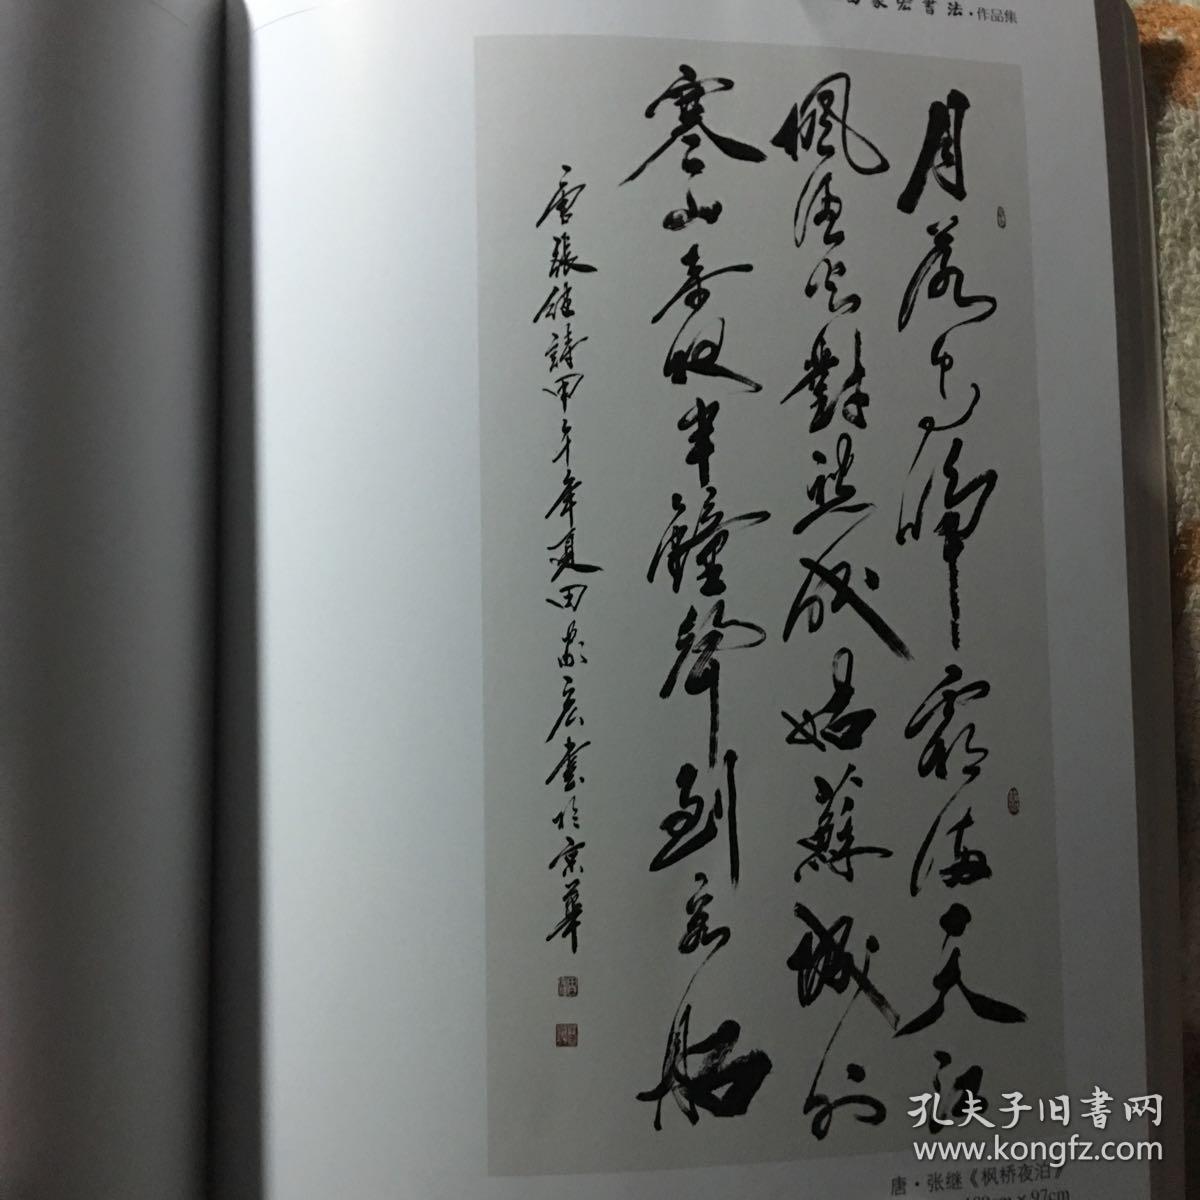 家宏書法·作品集
月落烏啼霜滿天江
楓漁火對愁眠姑蘇城外
寒山寺夜半鐘聲到客船
唐張繼詩甲午年夏田家宏書於京華
唐·张继《枫桥夜泊》
180cm×97cm
孔夫子旧書网
www.kongfz.com